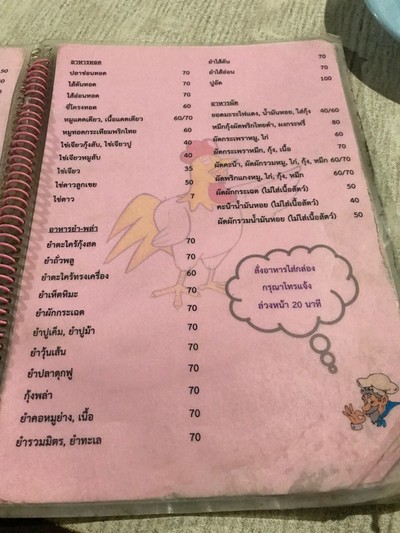 อาหารทอด
ปลาช่อนทอด 70
ไส้ตันทอด 70
ไส้อ่อนทอด 70
ซี่โครงทอด 60
หมูแดดเดียว, เนื้อแดดเดียว 60/70
หมูทอดกระเทียมพริกไทย 60
ไข่เจียวกุ้งสับ, ไข่เจียวปู 40
ไข่เจียวหมูสับ 40
ไข่เจียว 35
ไข่ดาวลูกเขย 50
ไข่ดาว 7
อาหารยำ-พล่า
ยำตะไคร้กุ้งสด 70
ยำถั่วพลู 70
ยำตะไคร้ทรงเครื่อง 60
ยำเห็ดหิมะ 70
ยำผักกระเฉด 70
ยำปูเค็ม, ยำปูม้า 70
ยำวุ้นเส้น 70
ยำปลาดุกฟู 70
กุ้งพล่า 70
ยำคอหมูย่าง, เนื้อ 70
ยำรวมมิตร, ยำทะเล 70
ยำไส้ตัน 70
ยำไส้อ่อน 70
ปูอัด 100
อาหารผัด
ยอดมะระไฟแดง, น้ำมันหอย, ใส่กุ้ง 40/60
หมึกกุ้งผัดพริกไทยดำ, ผงกระหรี่ 80
ผัดกระเพราหมู, ไก่ 60
ผัดกระเพราหมึก, กุ้ง, เนื้อ 70
ผัดคะน้า, ผัดผักรวมหมู, ไก่, กุ้ง, หมึก 60/70
ผัดพริกแกงหมู, ไก่, กุ้ง, หมึก 60/70
ผัดผักกระเฉด (ไม่ใส่เนื้อสัตว์) 50
คะน้าน้ำมันหอย (ไม่ใส่เนื้อสัตว์) 40
ผัดผักรวมน้ำมันหอย (ไม่ใส่เนื้อสัตว์) 50
สั่งอาหารใส่กล่อง
กรุณาโทรแจ้ง
ล่วงหน้า 20 นาที